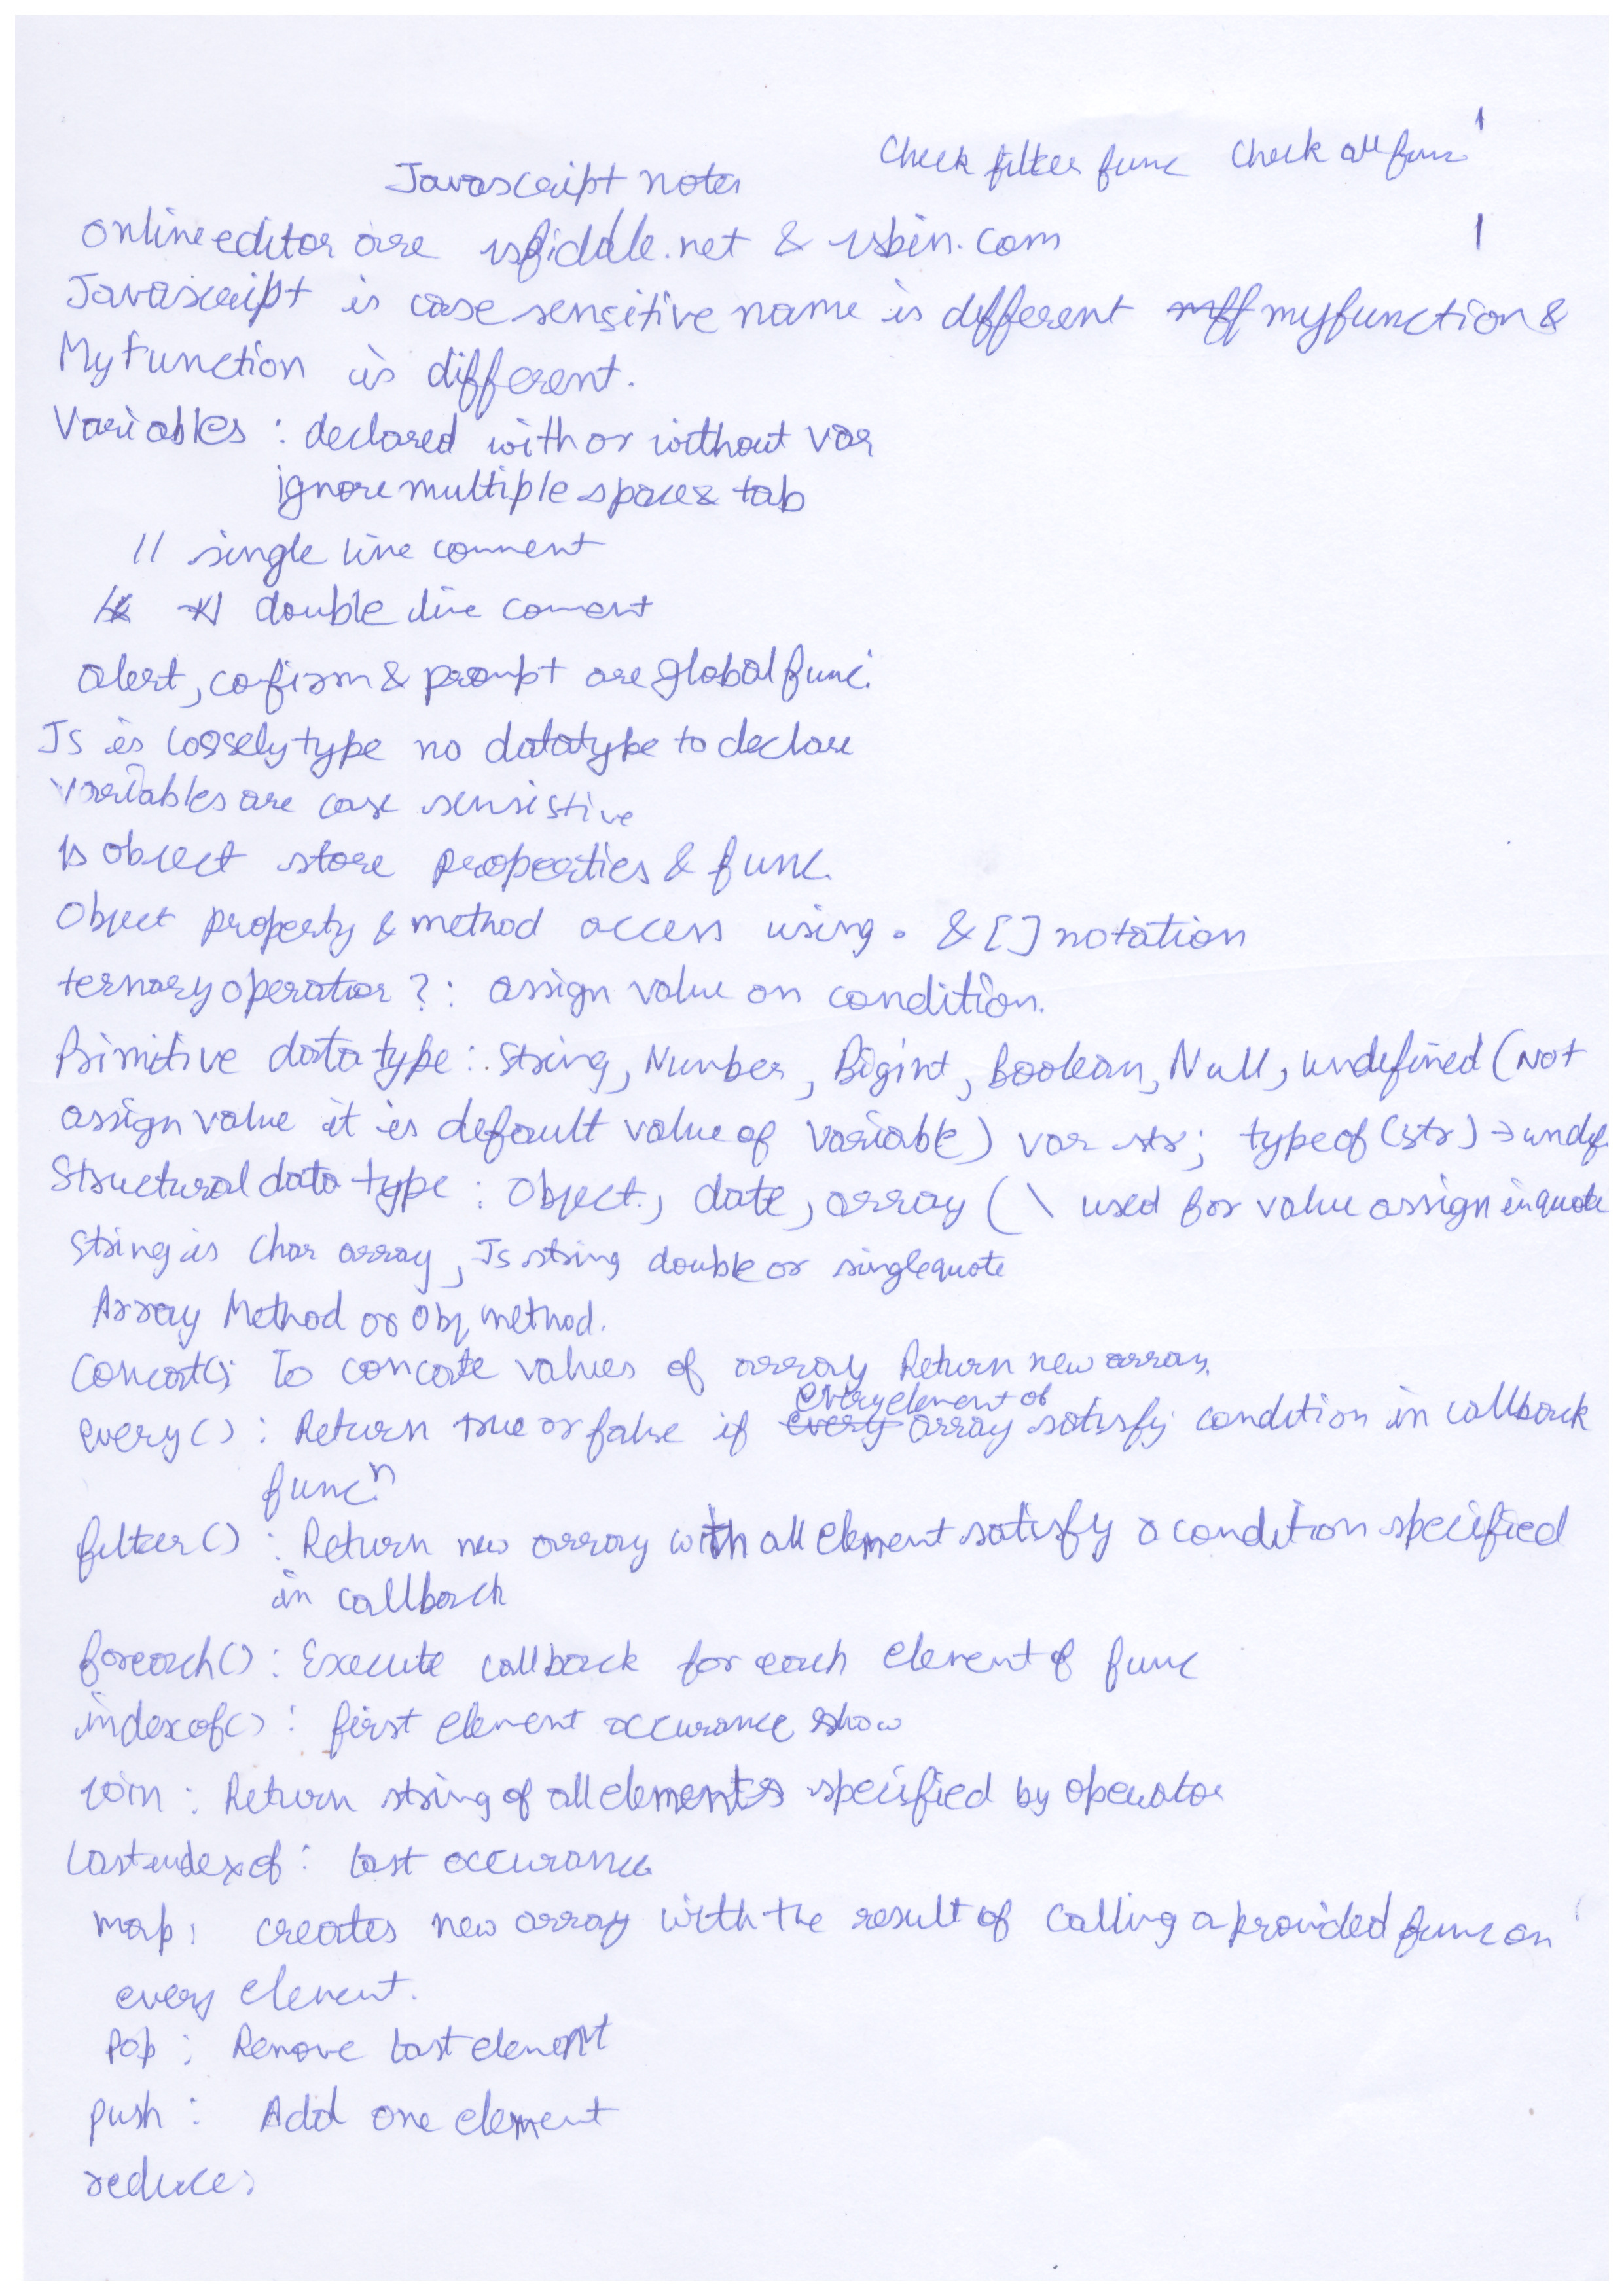 Check filter func Check all func
1
Javascript notes
1
online editor are jsfiddle.net & jsbin.com
Javascript is case sensitive name is different myfunction &
MyFunction is different.
Variables : declared with or without var
ignore multiple space & tab
// single line comment
/* */ double line coment
alert, cofirm & prompt are global func.
Js is loosely type no datatype to declare
Variables are case sensistive
Js object store properties & func.
Object property & method access using . & [ ] notation
ternary operator ? : assign value on condition.
Primitive data type : String, Number, Bigint, Boolean, Null, undefined (Not
assign value it is default value of variable) var str; typeof (str) → undef
Structural data type : Object, date, array ( \ used for value assign in quote
String is Char array, Js string double or single quote
Array Method or Obj method.
Concat(): To concate values of array Return new array.
every element of
every() : Return true or false if every array satisfy condition in callback
funcn.
filter() : Return new array with all element satisfy a condition specified
in callback
foreach() : Execute callback for each element of func
indexof() : first element occurance show
join : Return string of all elements specified by operator
Lastindexof : last occurance
map : creates new array with the result of calling a provided func on
every element.
Pop : Remove last element
push : Add one element
reduce :